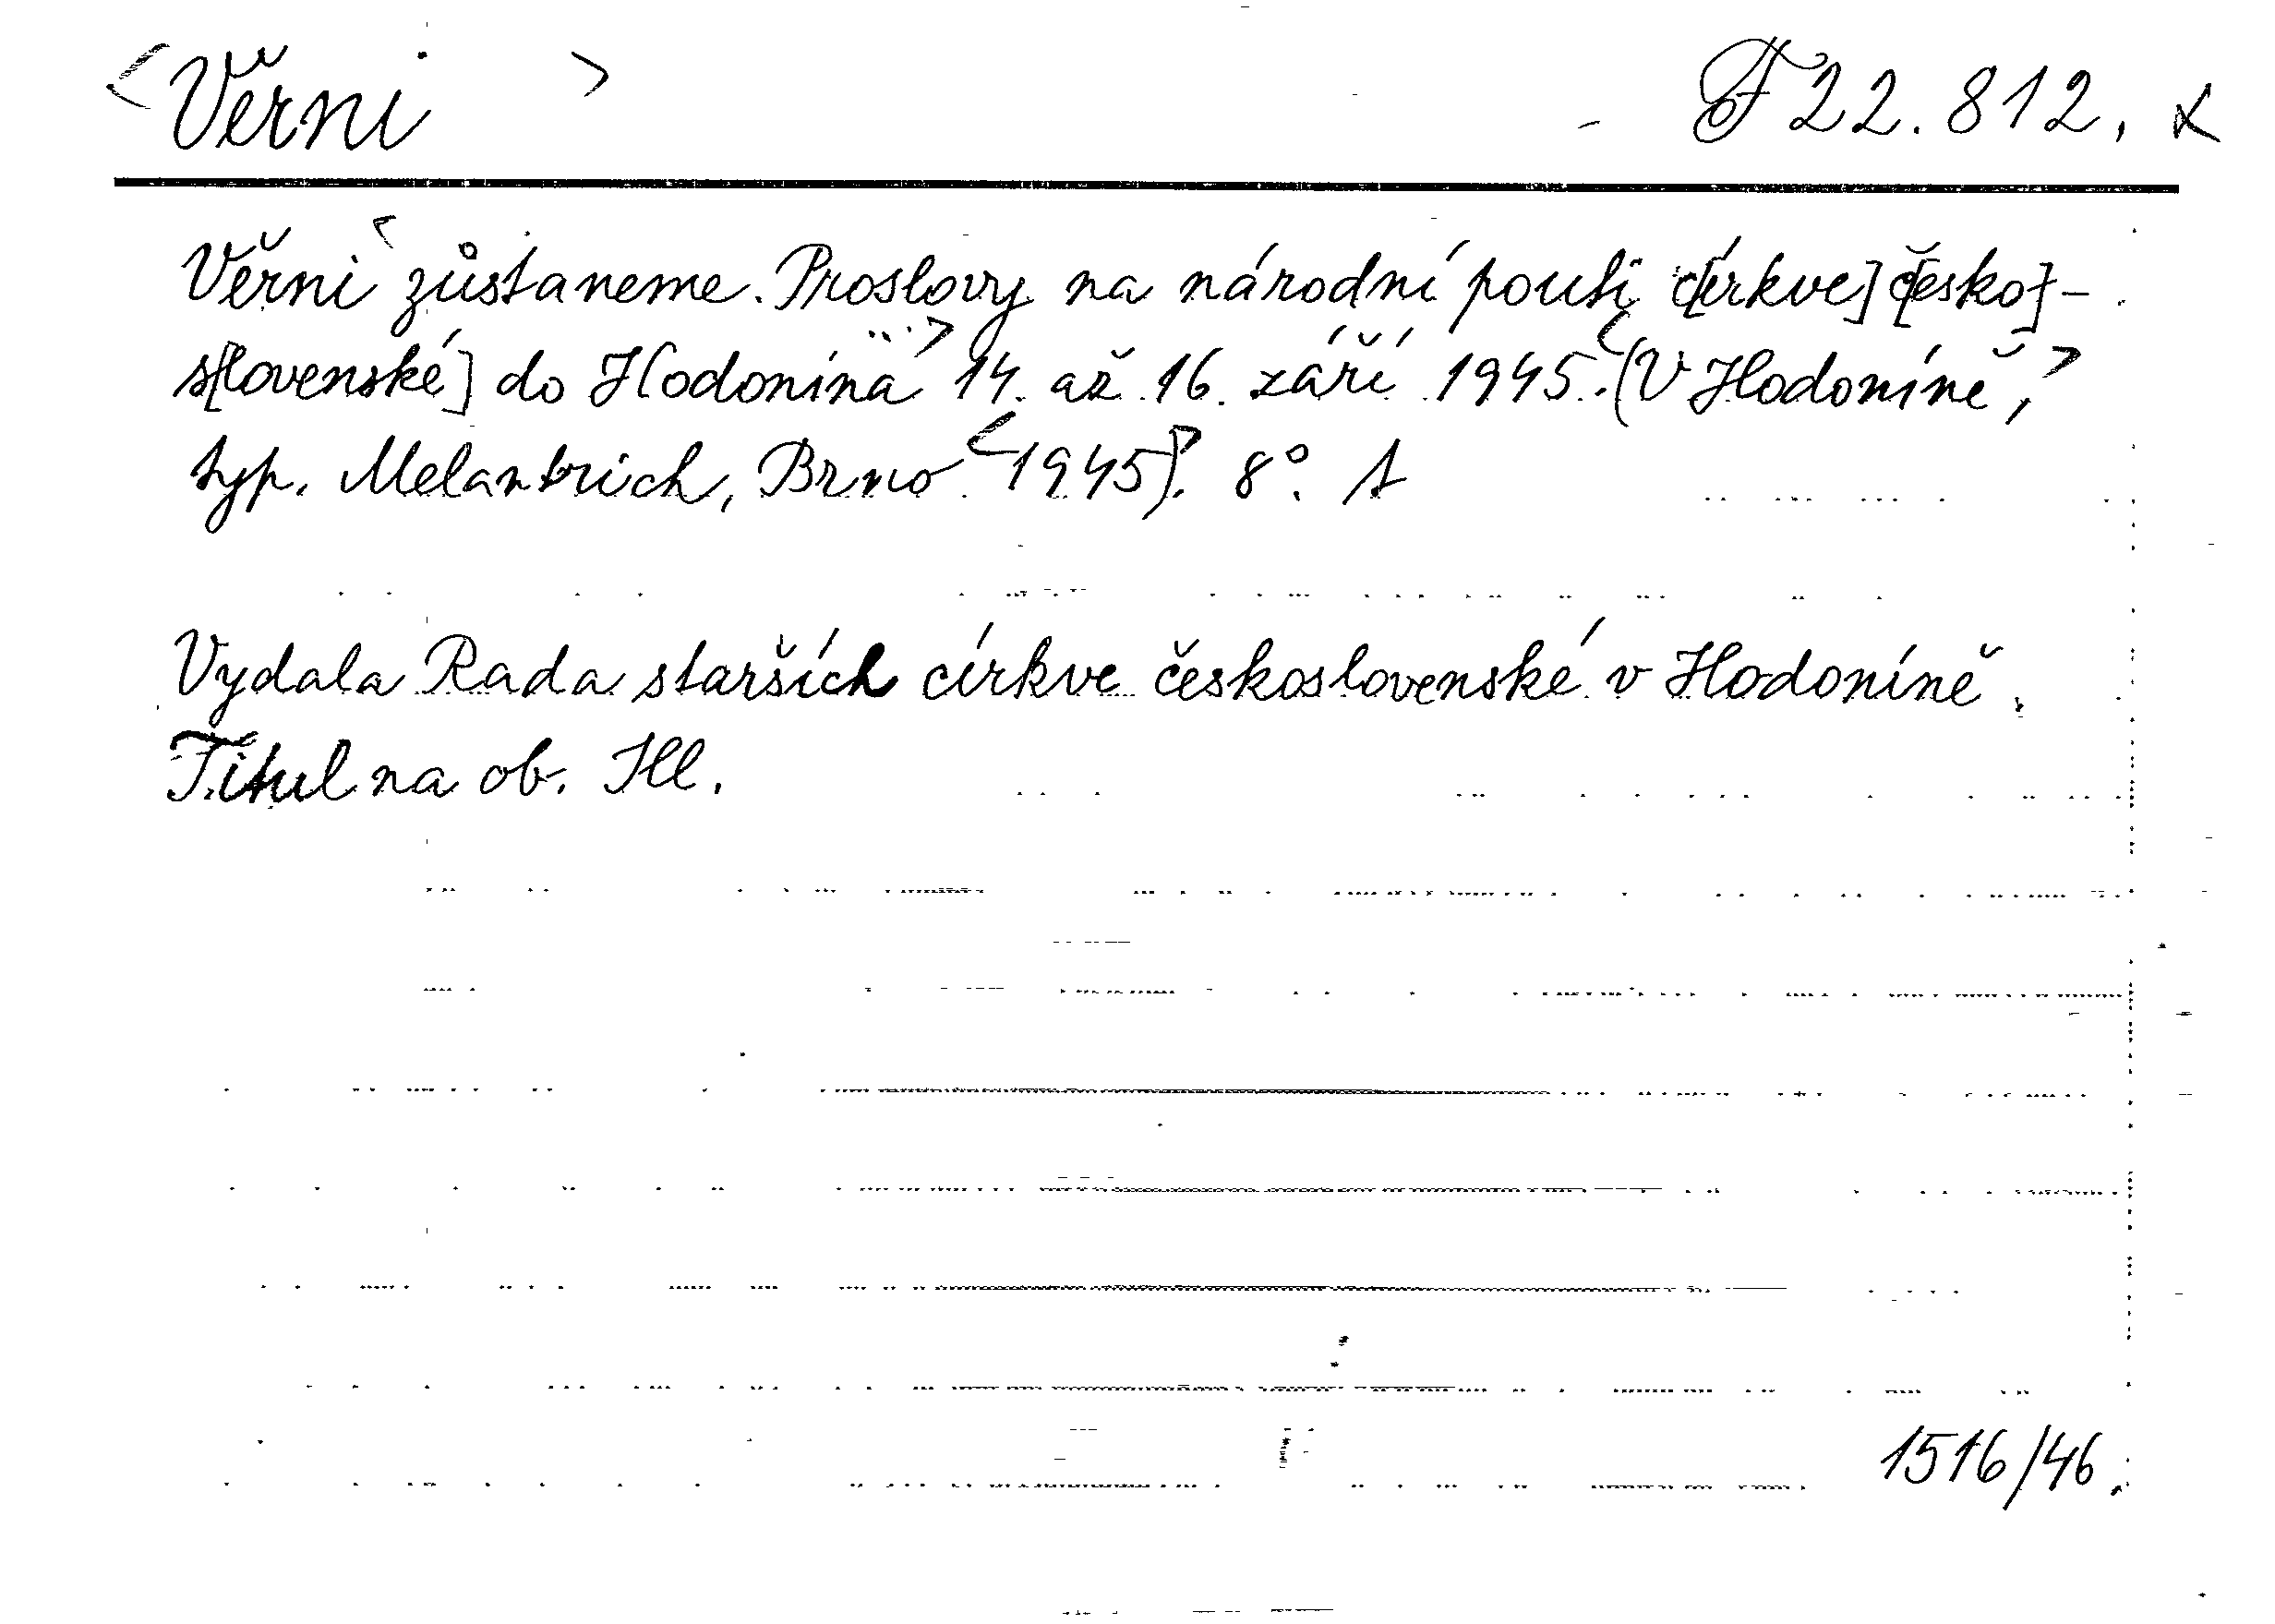 <Věrni > F 22.812, x
Věrni <zůstaneme. Proslovy na národní pouti c[írkve] č[esko]-
s[lovenské] do Hodonína...> 14. až 16. září 1945. <(V Hodoníně,>
typ. Melantrich, Brno <1945)>. 8°. A
Vydala Rada starších církve československé v Hodoníně.
Titul na ob. Ill.
1516/46.